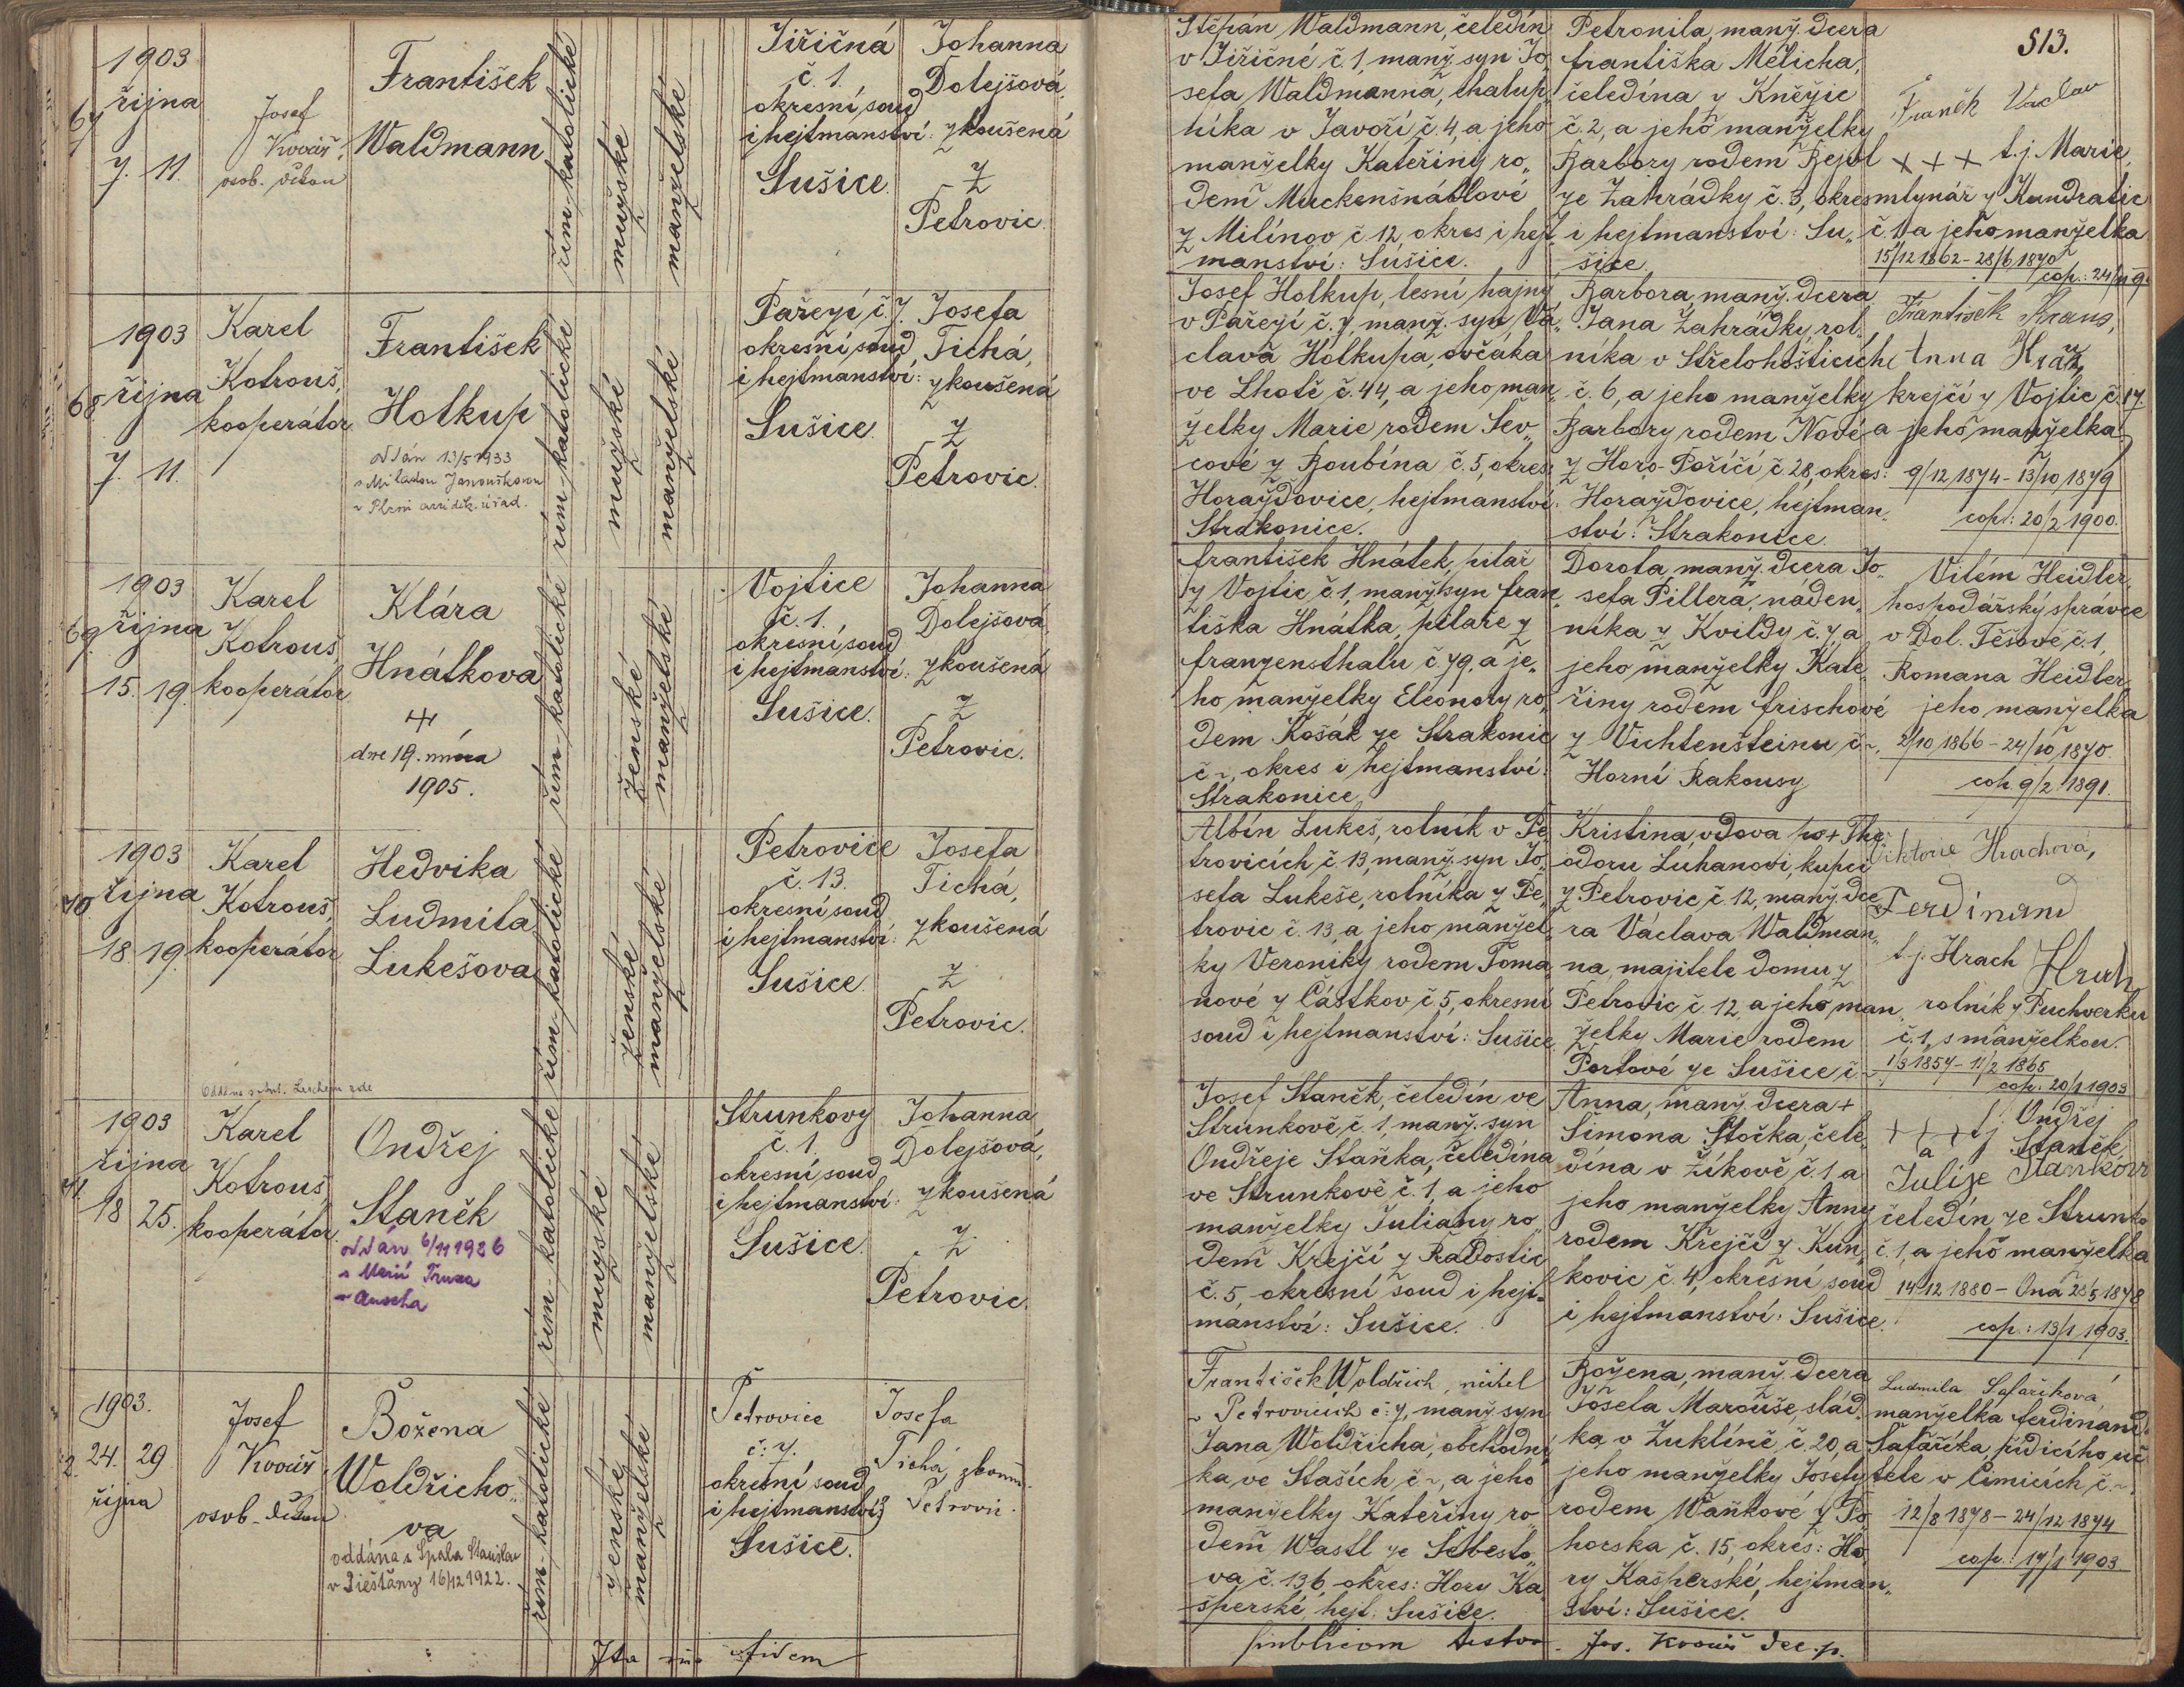 513.
1903
67 října
7. 11.
Josef
Kovář,
osob. děkan
František
Waldmann
řím-katolické
mužské
manželské
Jiřičná
č. 1.
okresní soud
i hejtmanství:
Sušice.
Johanna
Dolejšová,
zkoušená
z
Petrovic.
Štěpán Waldmann, čeledín
v Jiřičné č. 1, manž. syn Jo„
sefa Waldmanna, chalup„
níka v Javoří č. 4, a jeho
manželky Kateřiny ro„
dem Muckenšnáblové
z Milínov č. 12, okres i hejt„
manství: Sušice.
Petronila, manž. dcera
Františka Melicha,
čeledína z Kněžic
č. 2, a jeho manželky
Barbory rodem Bejvl
ze Zahrádky č. 3, okres
i hejtmanství: Su„
šice.
Franěk Vaclav
+ + + t. j. Marie,
mlynář z Kundratic
č. 1 a jeho manželka
15/12 1862 - 28/6 1870
1903
68 října
7. 11.
Karel
Kotrouš,
kooperátor
František
Holkup
oddán 13/5 1933
s Miladou Janouškovou
řím-katolické
mužské
manželské
Pařezí č. 7.
okresní soud
i hejtmanství:
Sušice.
Josefa
Tichá,
zkoušená
z
Petrovic.
Josef Holkup, lesní hajný
v Pařezí č. 7, manž. syn Vá„
clava Holkupa, ovčáka
ve Lhotě č. 44, a jeho man„
želky Marie rodem Šev„
cové z Boubína č. 5, okres:
Horažďovice, hejtmanství:
Strakonice.
Barbora, manž. dcera
Jana Zahrádky, rol„
níka v Střelohošticích
č. 6, a jeho manželky
Barbory rodem Nové
z Horo-Poříčí č. 28, okres:
Horažďovice, hejtman„
ství: Strakonice.
František Kraus,
Anna
krejčí z Vojtic č. 17
a jeho manželka
9/12 1874 - 13/10 1879
cop.: 20/2 1900.
1903
69. října
15. 19.
Karel
Kotrouš,
kooperátor
Klára
Hnátkova
dne 19. února
1905.
řím-katolické
ženské
manželské
Vojtice
č. 1.
okresní soud
i hejtmanství:
Sušice.
Johanna
Dolejšová,
zkoušená
z
Petrovic.
František Hnátek, pilař
z Vojtic č. 1, manž. syn Fran„
tiška Hnátka, pilaře z
Franzensthalu č. 79, a je„
ho manželky Eleonory ro„
dem Košák ze Strakonic
č ~, okres i hejtmanství:
Strakonice
Dorota, manž. dcera Jo„
sefa Pillera, náden„
níka z Kvildy č. 7, a
jeho manželky Kate„
řiny rodem Frischové
z Vichtenšteinu č ~.
Horní Rakousy
Vilém Heidler,
hospodářský správce
v Dol. Těšově č. 1,
Romana Heidler,
jeho manželka
2/10 1866 - 24/10 1870.
cop. 9/2 1891.
1903
70 října
18. 19.
Karel
Kotrouš,
kooperátor
Hedvika
Ludmila
Lukešova
řím-katolické
ženské
manželské
Petrovice
č. 13.
okresní soud
i hejtmanství:
Sušice.
Josefa
Tichá,
zkoušená
z
Petrovic.
Albín Lukeš, rolník v Pe„
trovicích č. 13, manž. syn Jo„
sefa Lukeše, rolníka z Pe„
trovic č. 13, a jeho manžel„
ky Veroniky rodem Toma„
nové z Částkov č. 5, okresní
soud i hejtmanství: Sušice.
Kristina, vdova po + The„
odoru Luhanovi, kupci
z Petrovic č. 12, manž. dce„
ra Václava Waldman„
na, majitele domu z
Petrovic č. 12, a jeho man„
želky Marie rodem
Portové ze Sušice č. ~
Viktorie Hrachová,
Ferdinand
t. j. Hrach Hrach
rolník z Puchverku
č. 1, s manželkou.
1/3 1857 - 11/2 1865
cop. 20/1 1903
1903
71. října
18 25.
Karel
Kotrouš,
kooperátor
Ondřej
Staněk
oddán 6/11 1926
s Marií
řím-katolické
mužské
manželské
Strunkovy
č. 1.
okresní soud
i hejtmanství:
Sušice.
Johanna
Dolejšová,
zkoušená
z
Petrovic.
Josef Staněk, čeledín ve
Strunkově č. 1, manž. syn
Ondřeje Staňka, čeledína
ve Strunkově č. 1, a jeho
manželky Juliany ro„
dem Krejčí z Radostic
č. 5, okresní soud i hejt„
manství: Sušice.
Anna, manž. dcera +
Šimona Stočka, čele„
dína v Žíkově č. 1, a
jeho manželky Anny
rodem Křejčí z Kun„
kovic č. 4, okresní soud
i hejtmanství: Sušice.
+ + + t. j. Ondřej
a Staněk,
Julije Staňková
čeledín ze Strunko
č. 1, a jeho manželka
14/12 1880 - Ona 28/5 1878
cop.: 13/1 1903.
1903.
2. 24. 29
října
Josef
Kovář
osob. děkan
Božena
Woldřicho„
va
oddána s Spala Stanislav
v Piešťany 16/12 1922.
řím-katolické
ženské
manželské
Petrovice
č: 7.
okresní soud
i hejtmanství
Sušice.
Josefa
Tichá, zkouš.
z Petrovic.
František Woldřich, učitel
v Petrovicích č: 7, manž. syn
Jana Woldřicha, obchodní„
ka ve Staších č ~, a jeho
manželky Kateřiny ro„
dem Wastl ze Šebesto„
va č. 136, okres: Hory Ka„
šperské, hejt. Sušice.
Božena, manž. dcera
Josefa Marouše, slád„
ka v Žuklíně č. 20, a
jeho manželky Josefy
rodem Waňkové z Po„
horska č. 15, okres: Ho„
ry Kašperské, hejtman„
ství: Sušice.
Ludmila Safaříková,
manželka Ferdinand
Šafaříka, řídícího uči„
tele v Čimicích č. ~,
12/8 1878 - 24/12 1874
cop.: 17/1 1903
Ita fidem
publicam testor. Jos. Kovář dec. p.